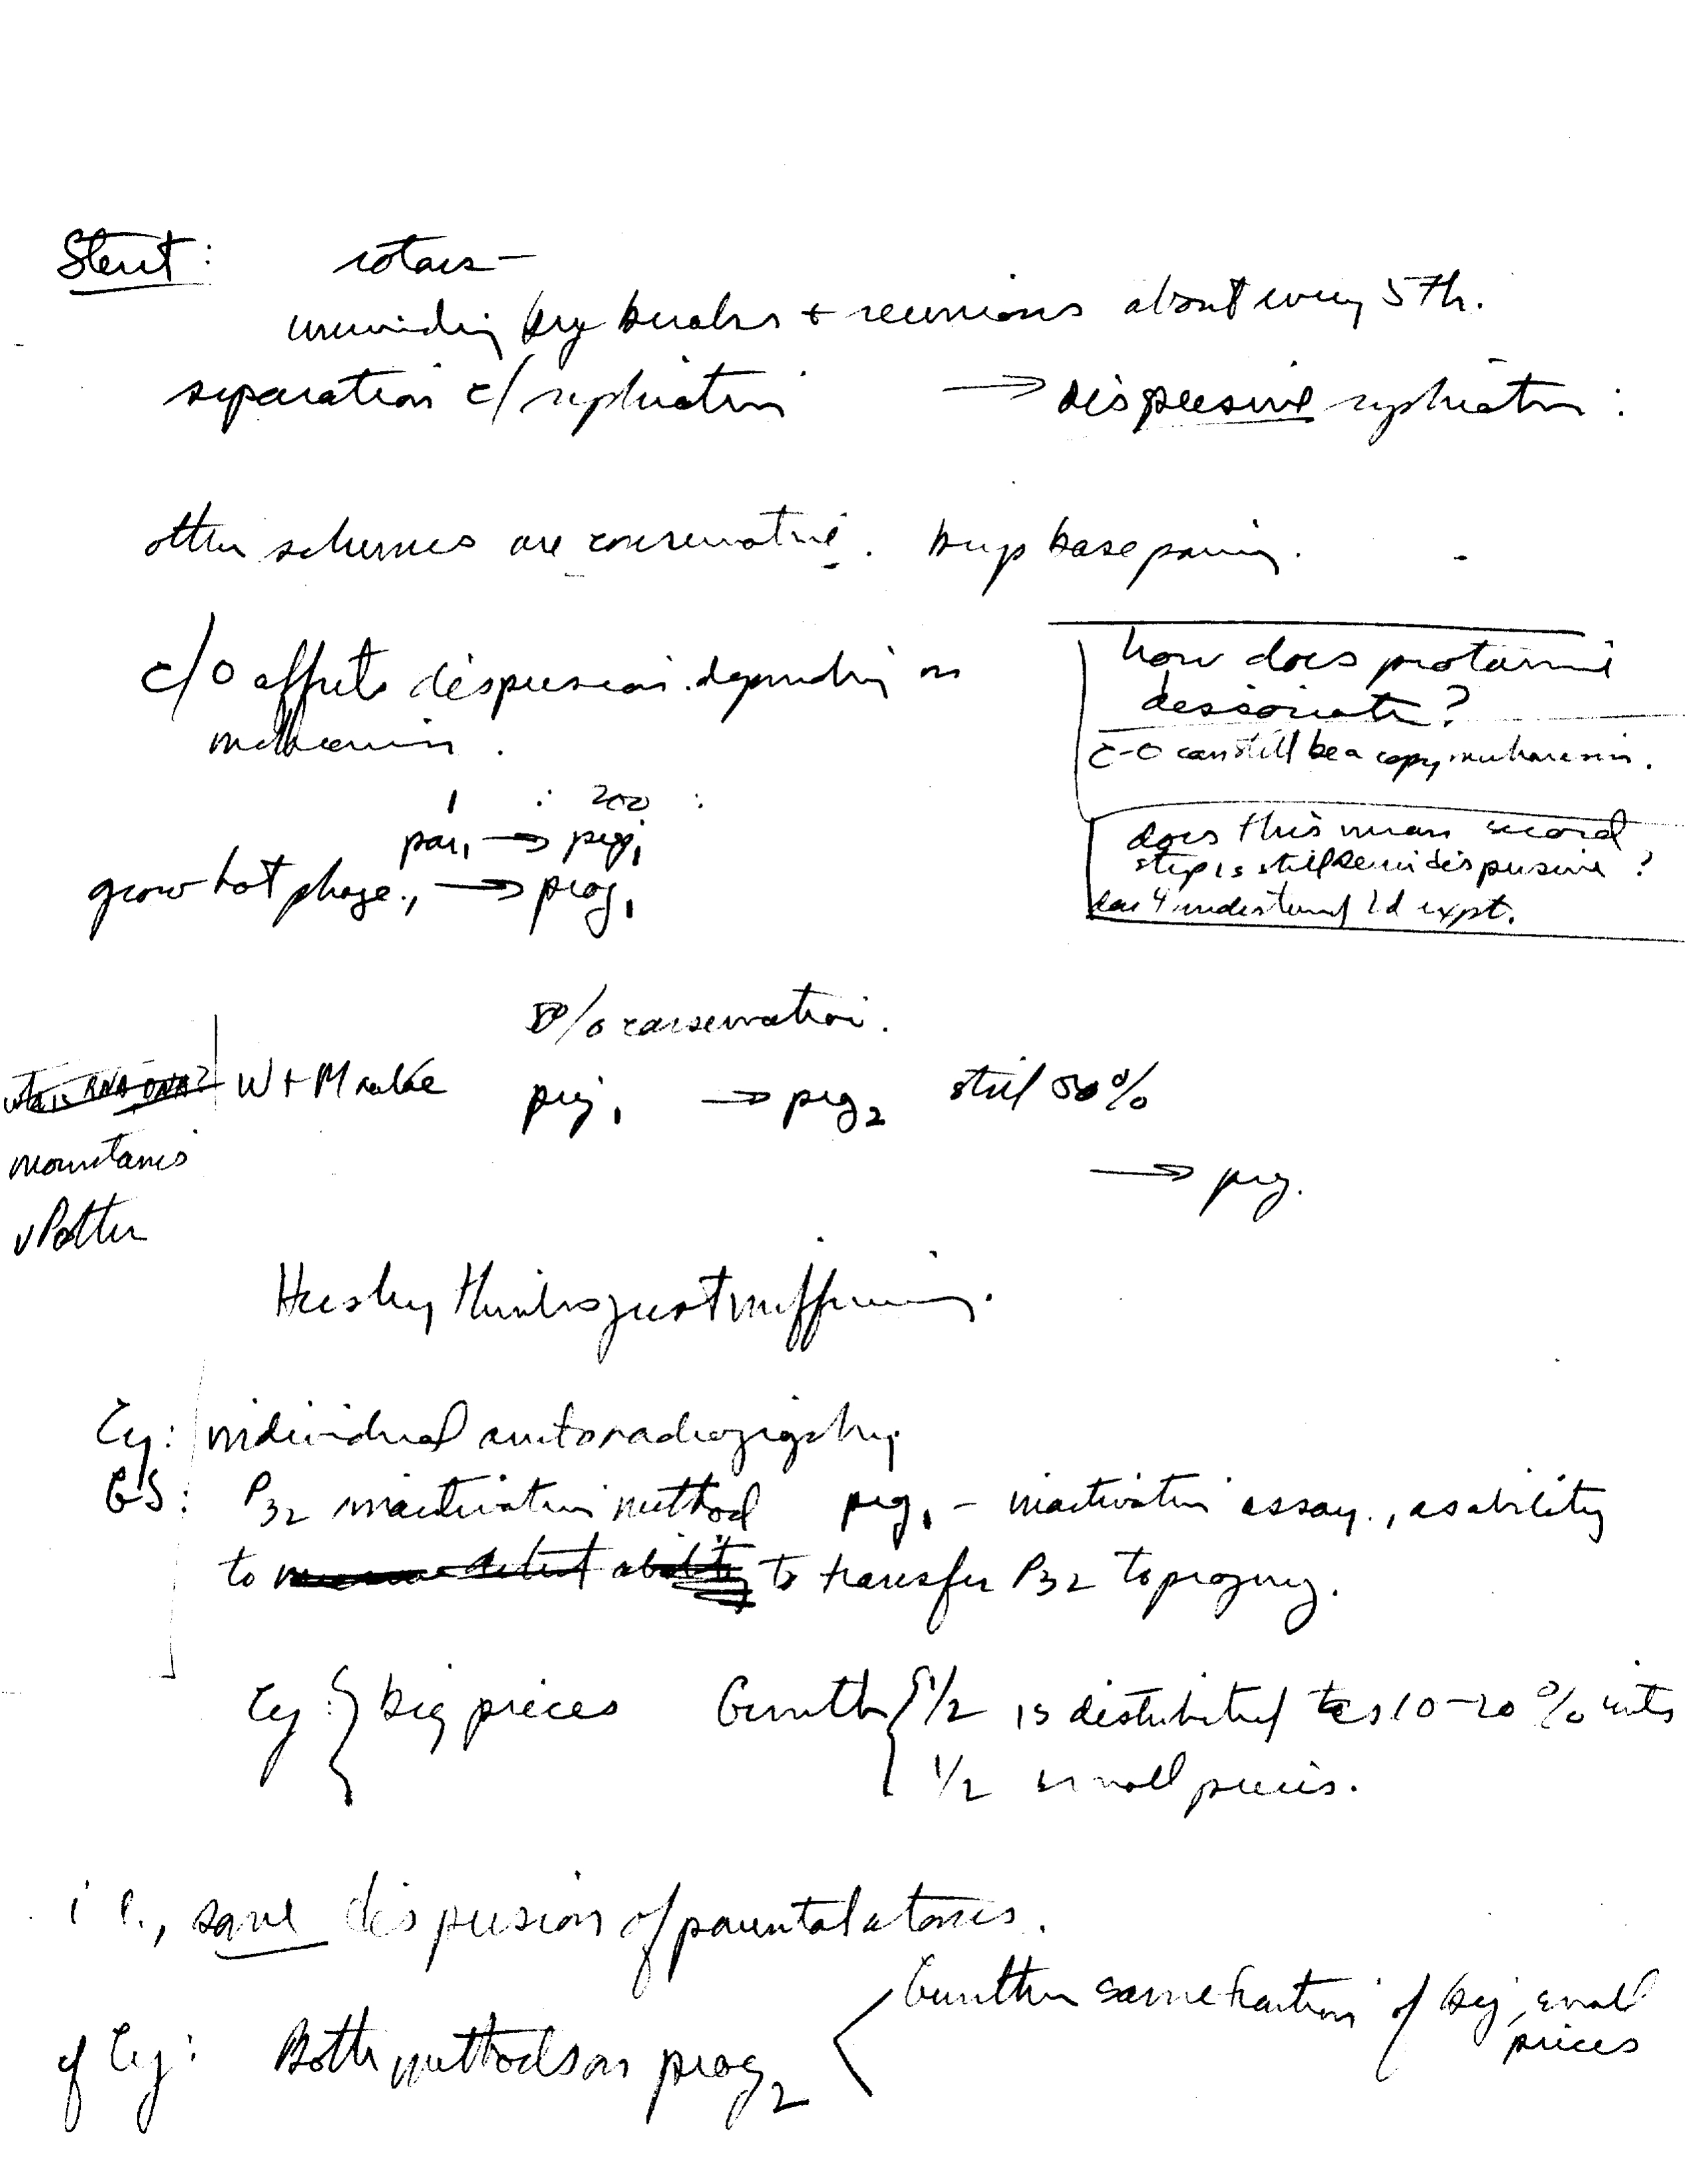 Stent:
unwinding by breaks + reunions about every 5th.
separation c/ replication → dispersive replication:
other schemes are conservative. keep base pairing.
c/o affects dispersion depending on
mechanism.
how does protamine
dissociate?
c-o can still be a copy mechanism.
does this mean second
step is still semidispersive?
understand 2d expt.
1 : 200 :
par1 → prog1
grow hot phage, → prog1
50% conservation.
W + M
prog1 → prog2 still 50%
→ prog.
mountains
v Potter
Hershey thinks just
Cy: individual autoradiography
GS: P32 inactivation method prog1 - inactivation assay, as ability
to detect ability to transfer P32 to progeny.
Cy: } big pieces Gunther { 1/2 is distributed as 10-20% units
1/2 small pieces.
i.e., same dispersion of parental atoms.
Gunther same fraction of big, small
pieces
if Cy: Both methods on prog2 <